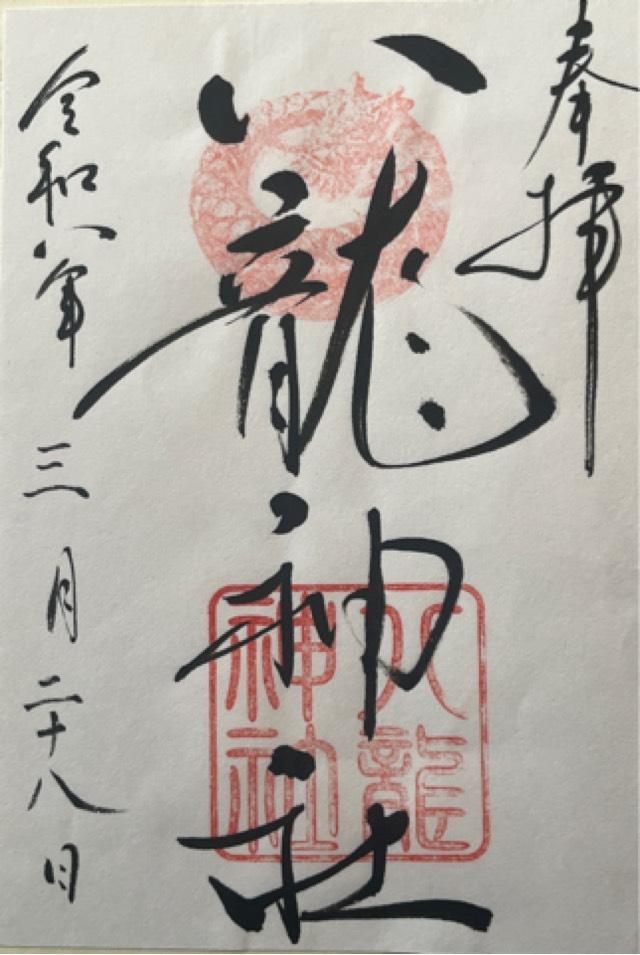 奉拝
八龍神社
八龍
神社
令和八年 三月二十八日